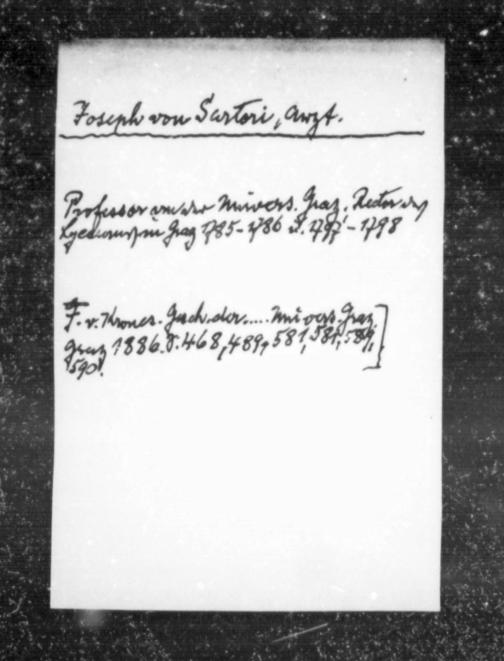 Joseph von Sartori, Arzt.
Professor an der Univers. Graz, Rector des
Lyceums in Graz 1785-1786 u. 1797-1798
F. v. Krones. Gesch. der .... Univers. Graz,
Graz 1886. S. 468, 489, 581, 581, 589,
590.]